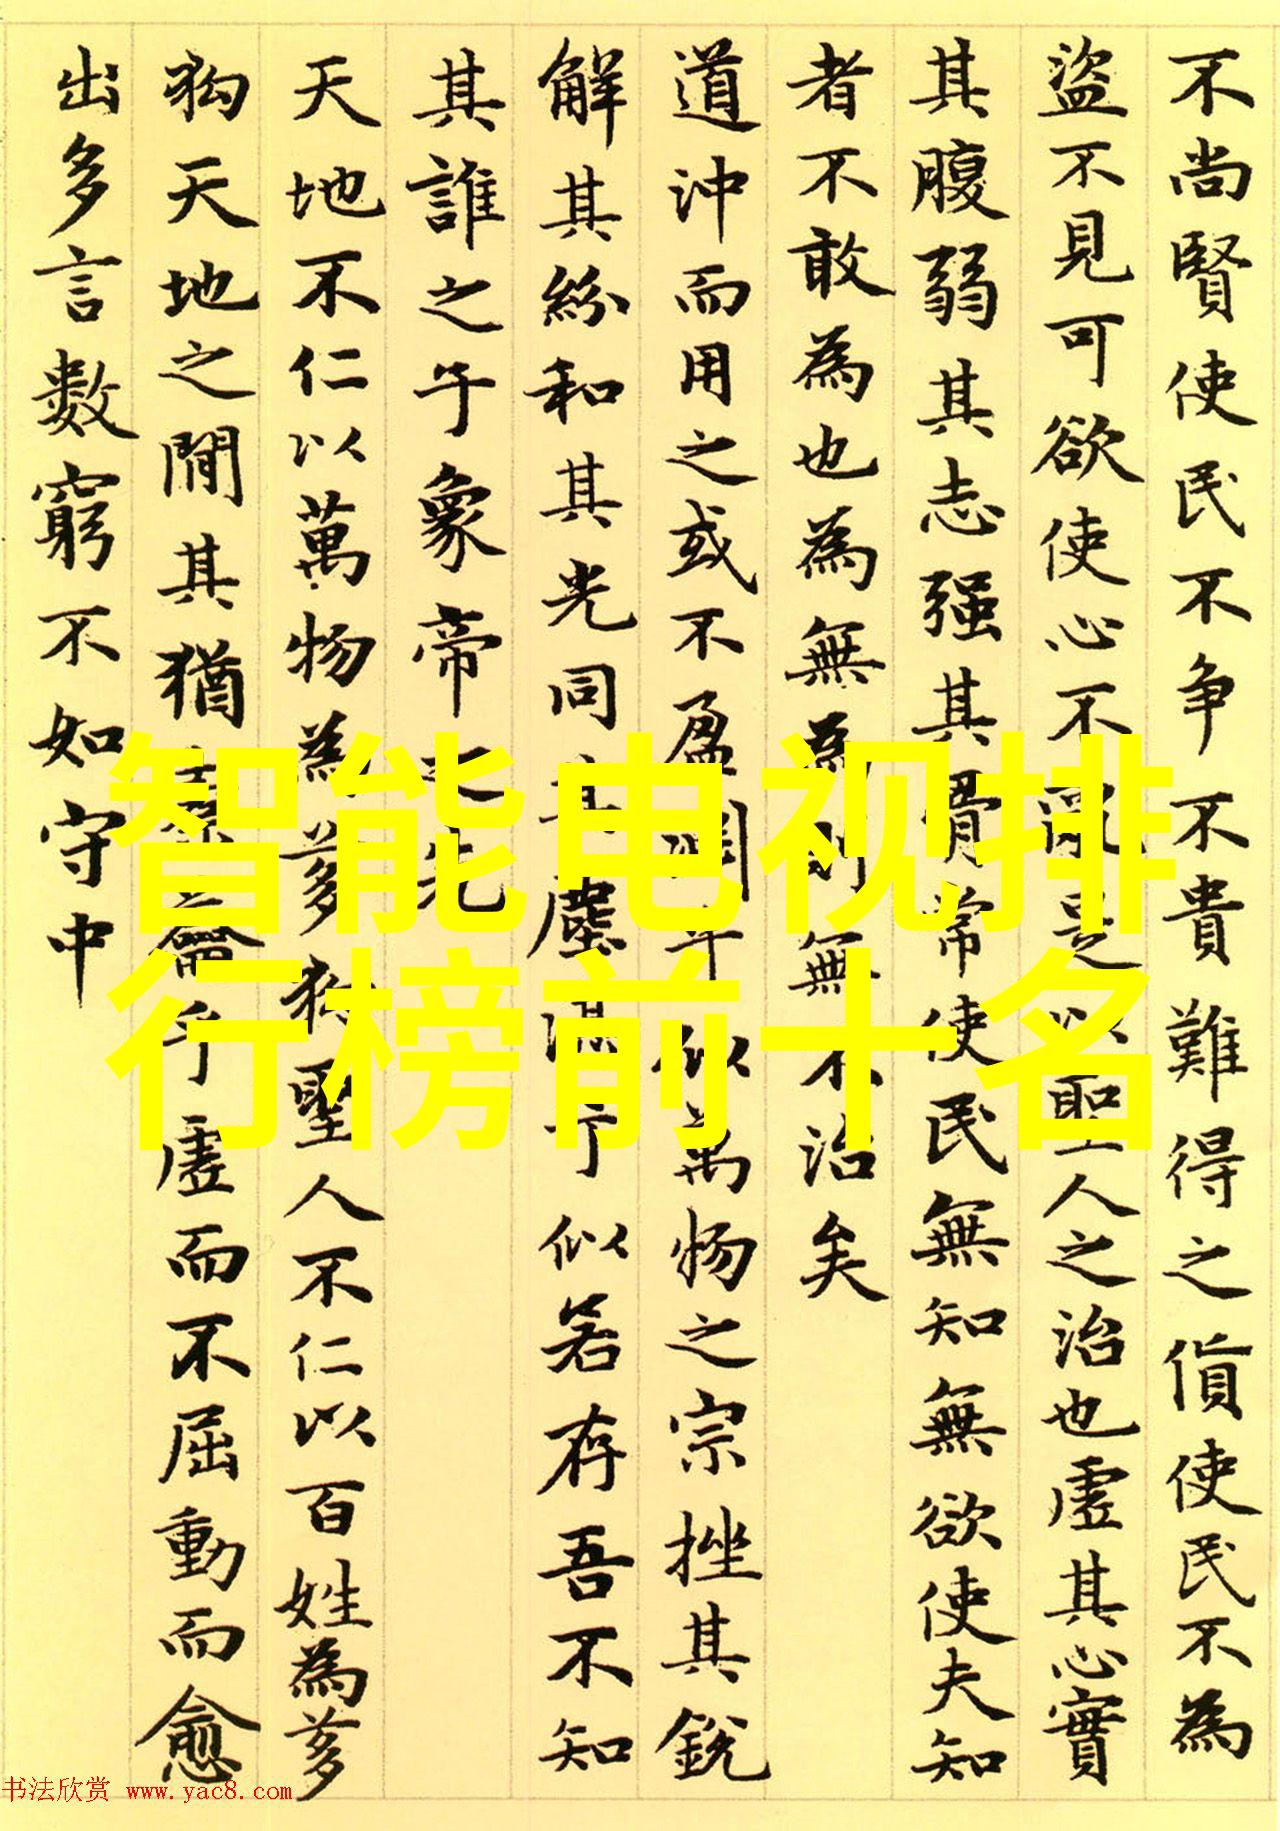 不尚賢使民不争不貴難得之貨使民不為
盜不見可欲使心不亂是以聖人之治也虛其心實
其腹弱其志强其骨常使民無知無欲使夫知
者不敢為也為無為則無不治矣
道沖而用之或不盈淵乎似萬物之宗挫其銳
解其紛和其光同其塵湛乎似若存吾不知
其誰之子象帝之先
天地不仁以萬物為芻狗聖人不仁以百姓為芻
狗天地之間其猶橐籥乎虛而不屈動而愈
出多言數窮不如守中
智能电视排
行榜前十名
书法欣赏 www.yac8.com